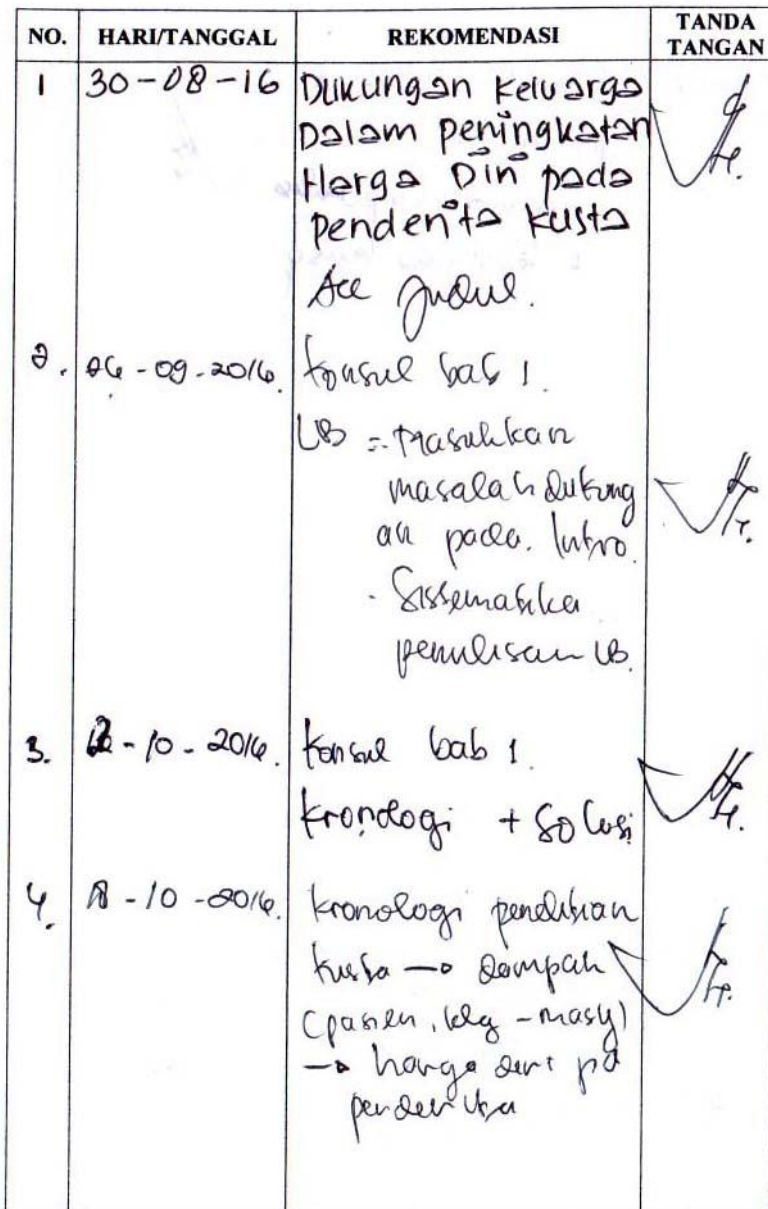 NO. HARI/TANGGAL REKOMENDASI TANDA TANGAN
1 30-08-16 Dukungan keluarga
Dalam peningkatan
Harga Diri pada
penderita kusta
Acc Judul.
2. 26-09-2016. konsul bab 1.
LB = Masukkan
masalah dukung
an pada. Intro.
- Sistematika
penulisan LB.
3. -10-2016. konsul bab 1.
kronologi + Solusi
4. -10-2016. kronologi penelitian
kusta → dampak
(pasien, klg - masy)
→ harga diri pd
penderita